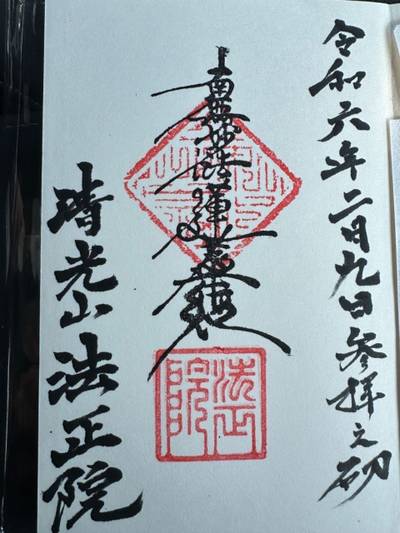 令和六年二月九日参拝之砌
南無妙法蓮華経
晴光山法正院
法正院